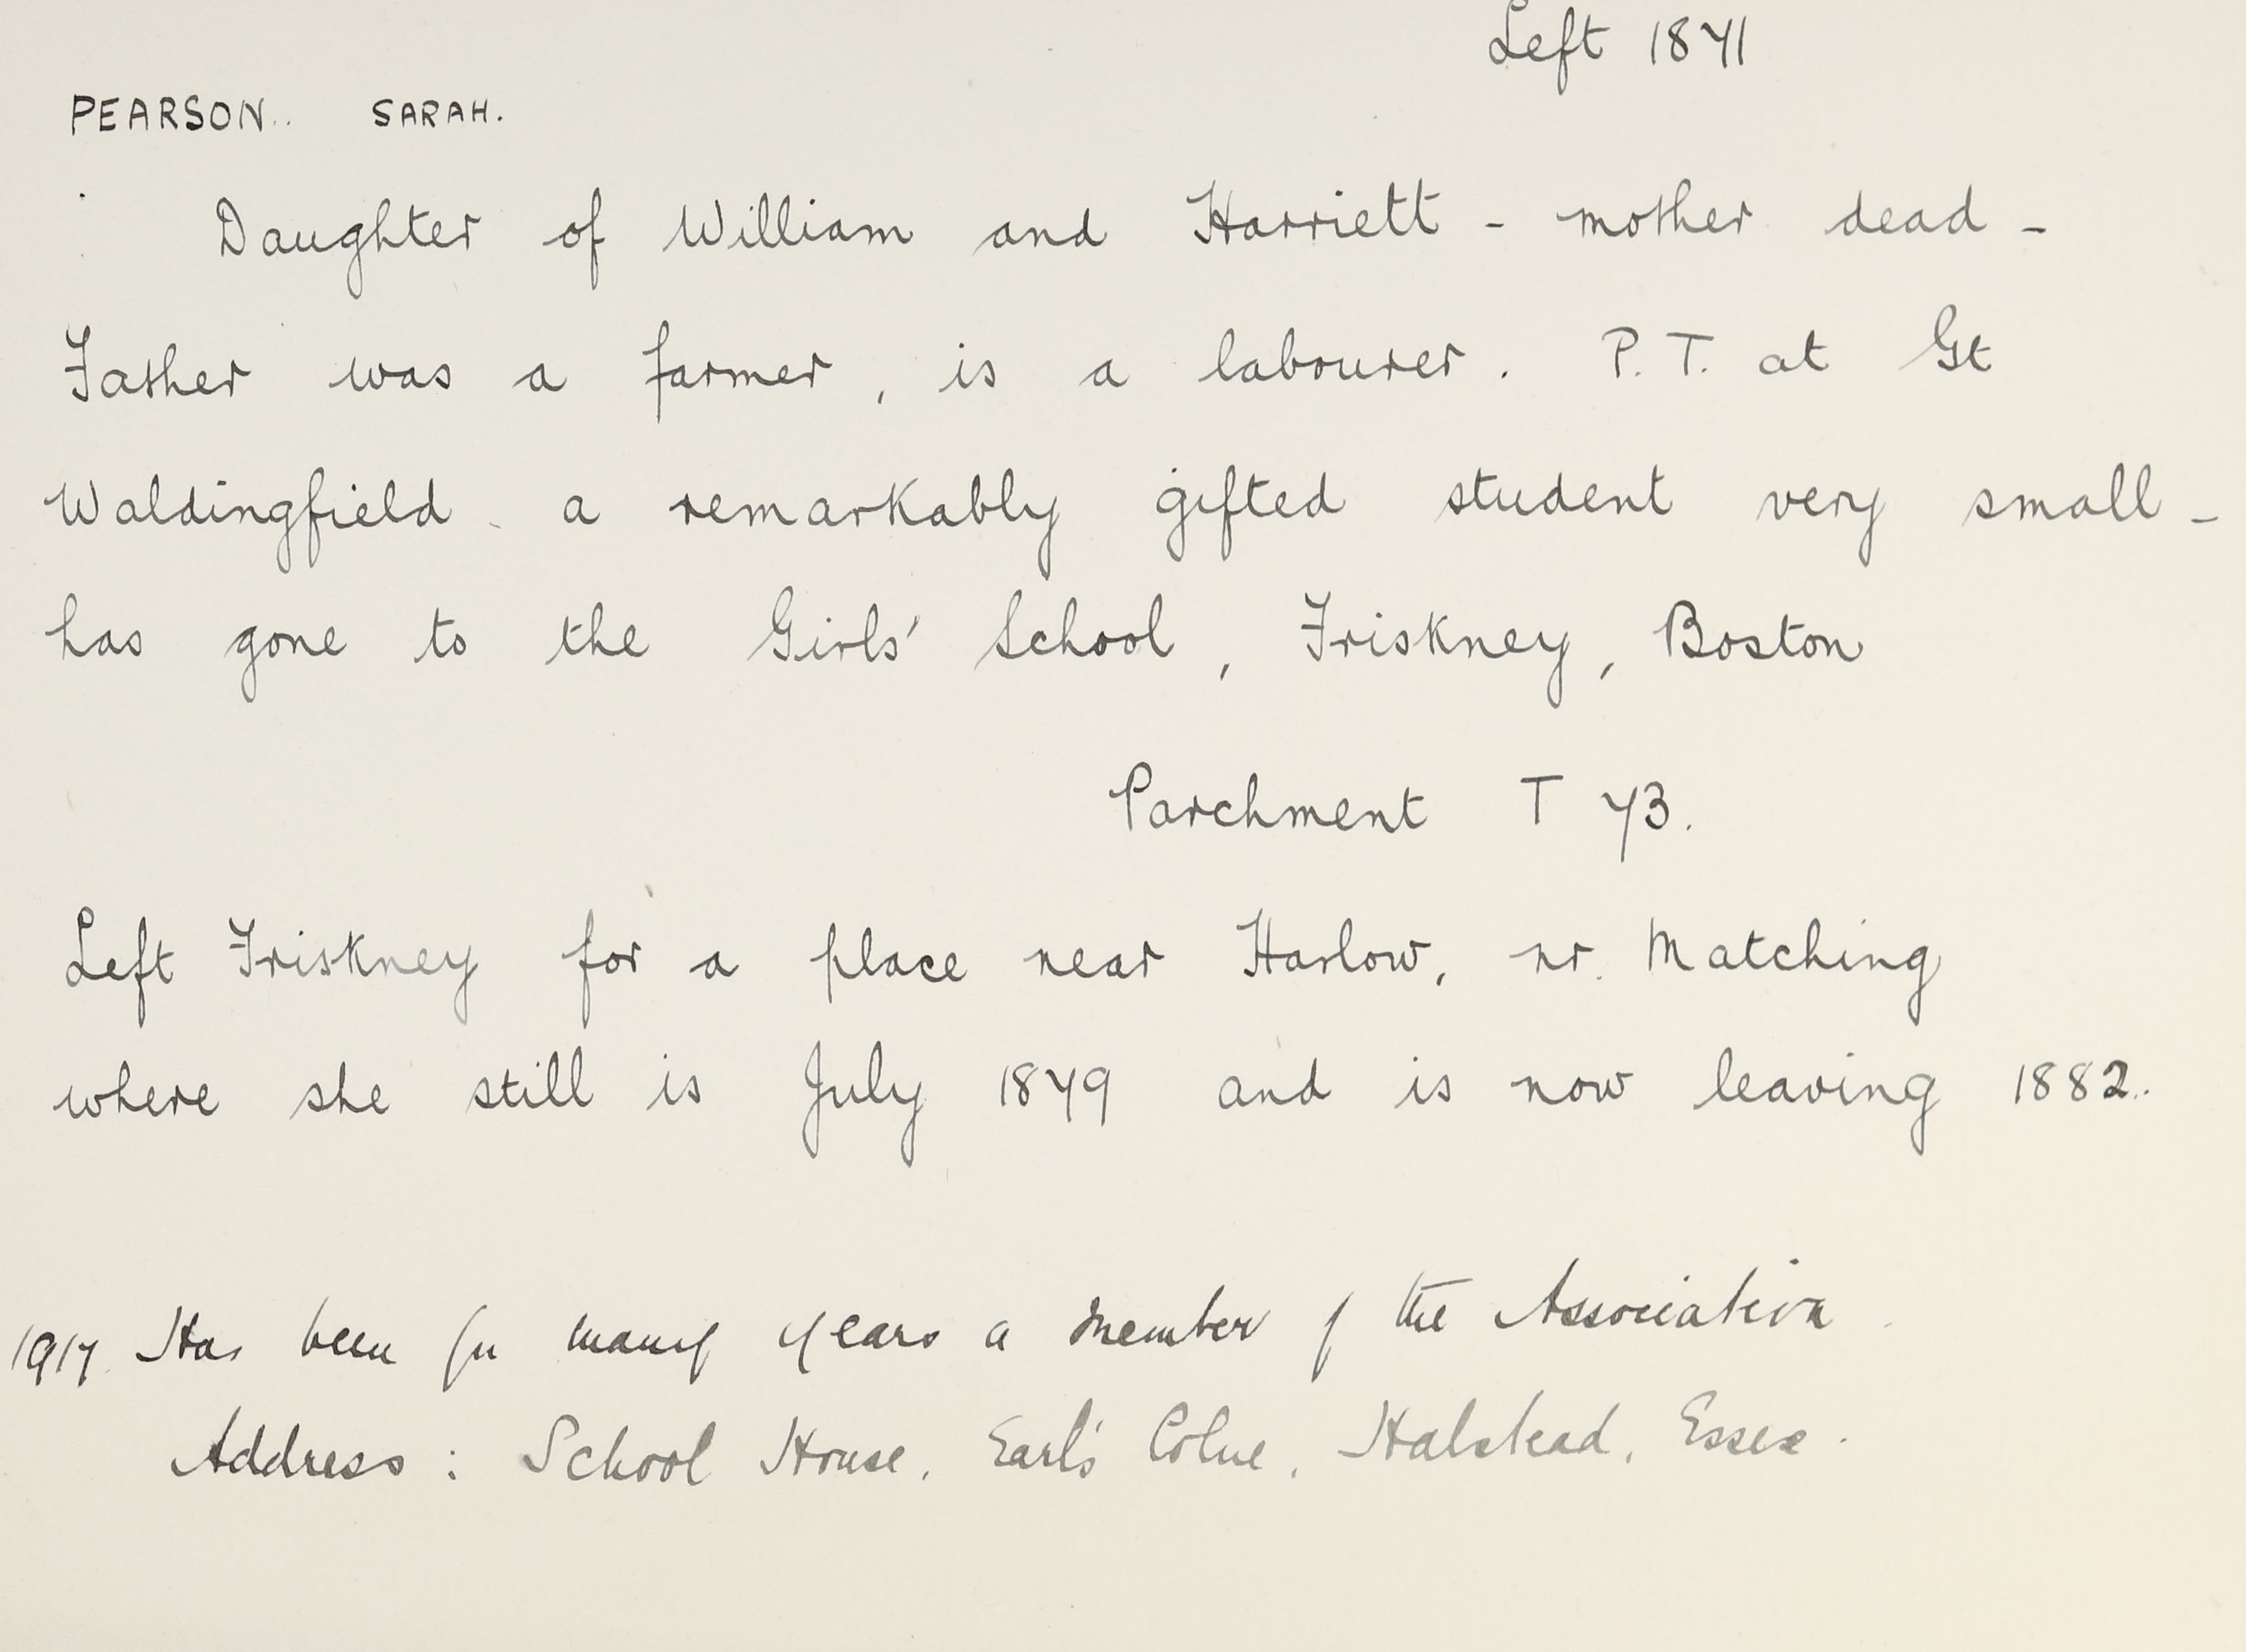 Left 1871
PEARSON. SARAH.
Daughter of William and Harriett - mother dead -
Father was a farmer, is a labourer. P.T. at Gt
Waldingfield - a remarkably gifted student very small -
has gone to the Girls' School, Friskney, Boston
Parchment T 73.
Left Friskney for a place near Harlow, nr. Matching
where she still is July 1879 and is now leaving 1882.
1917. Has been for many years a member of the Association.
Address: School House, Earl's Colne, Halstead, Essex.